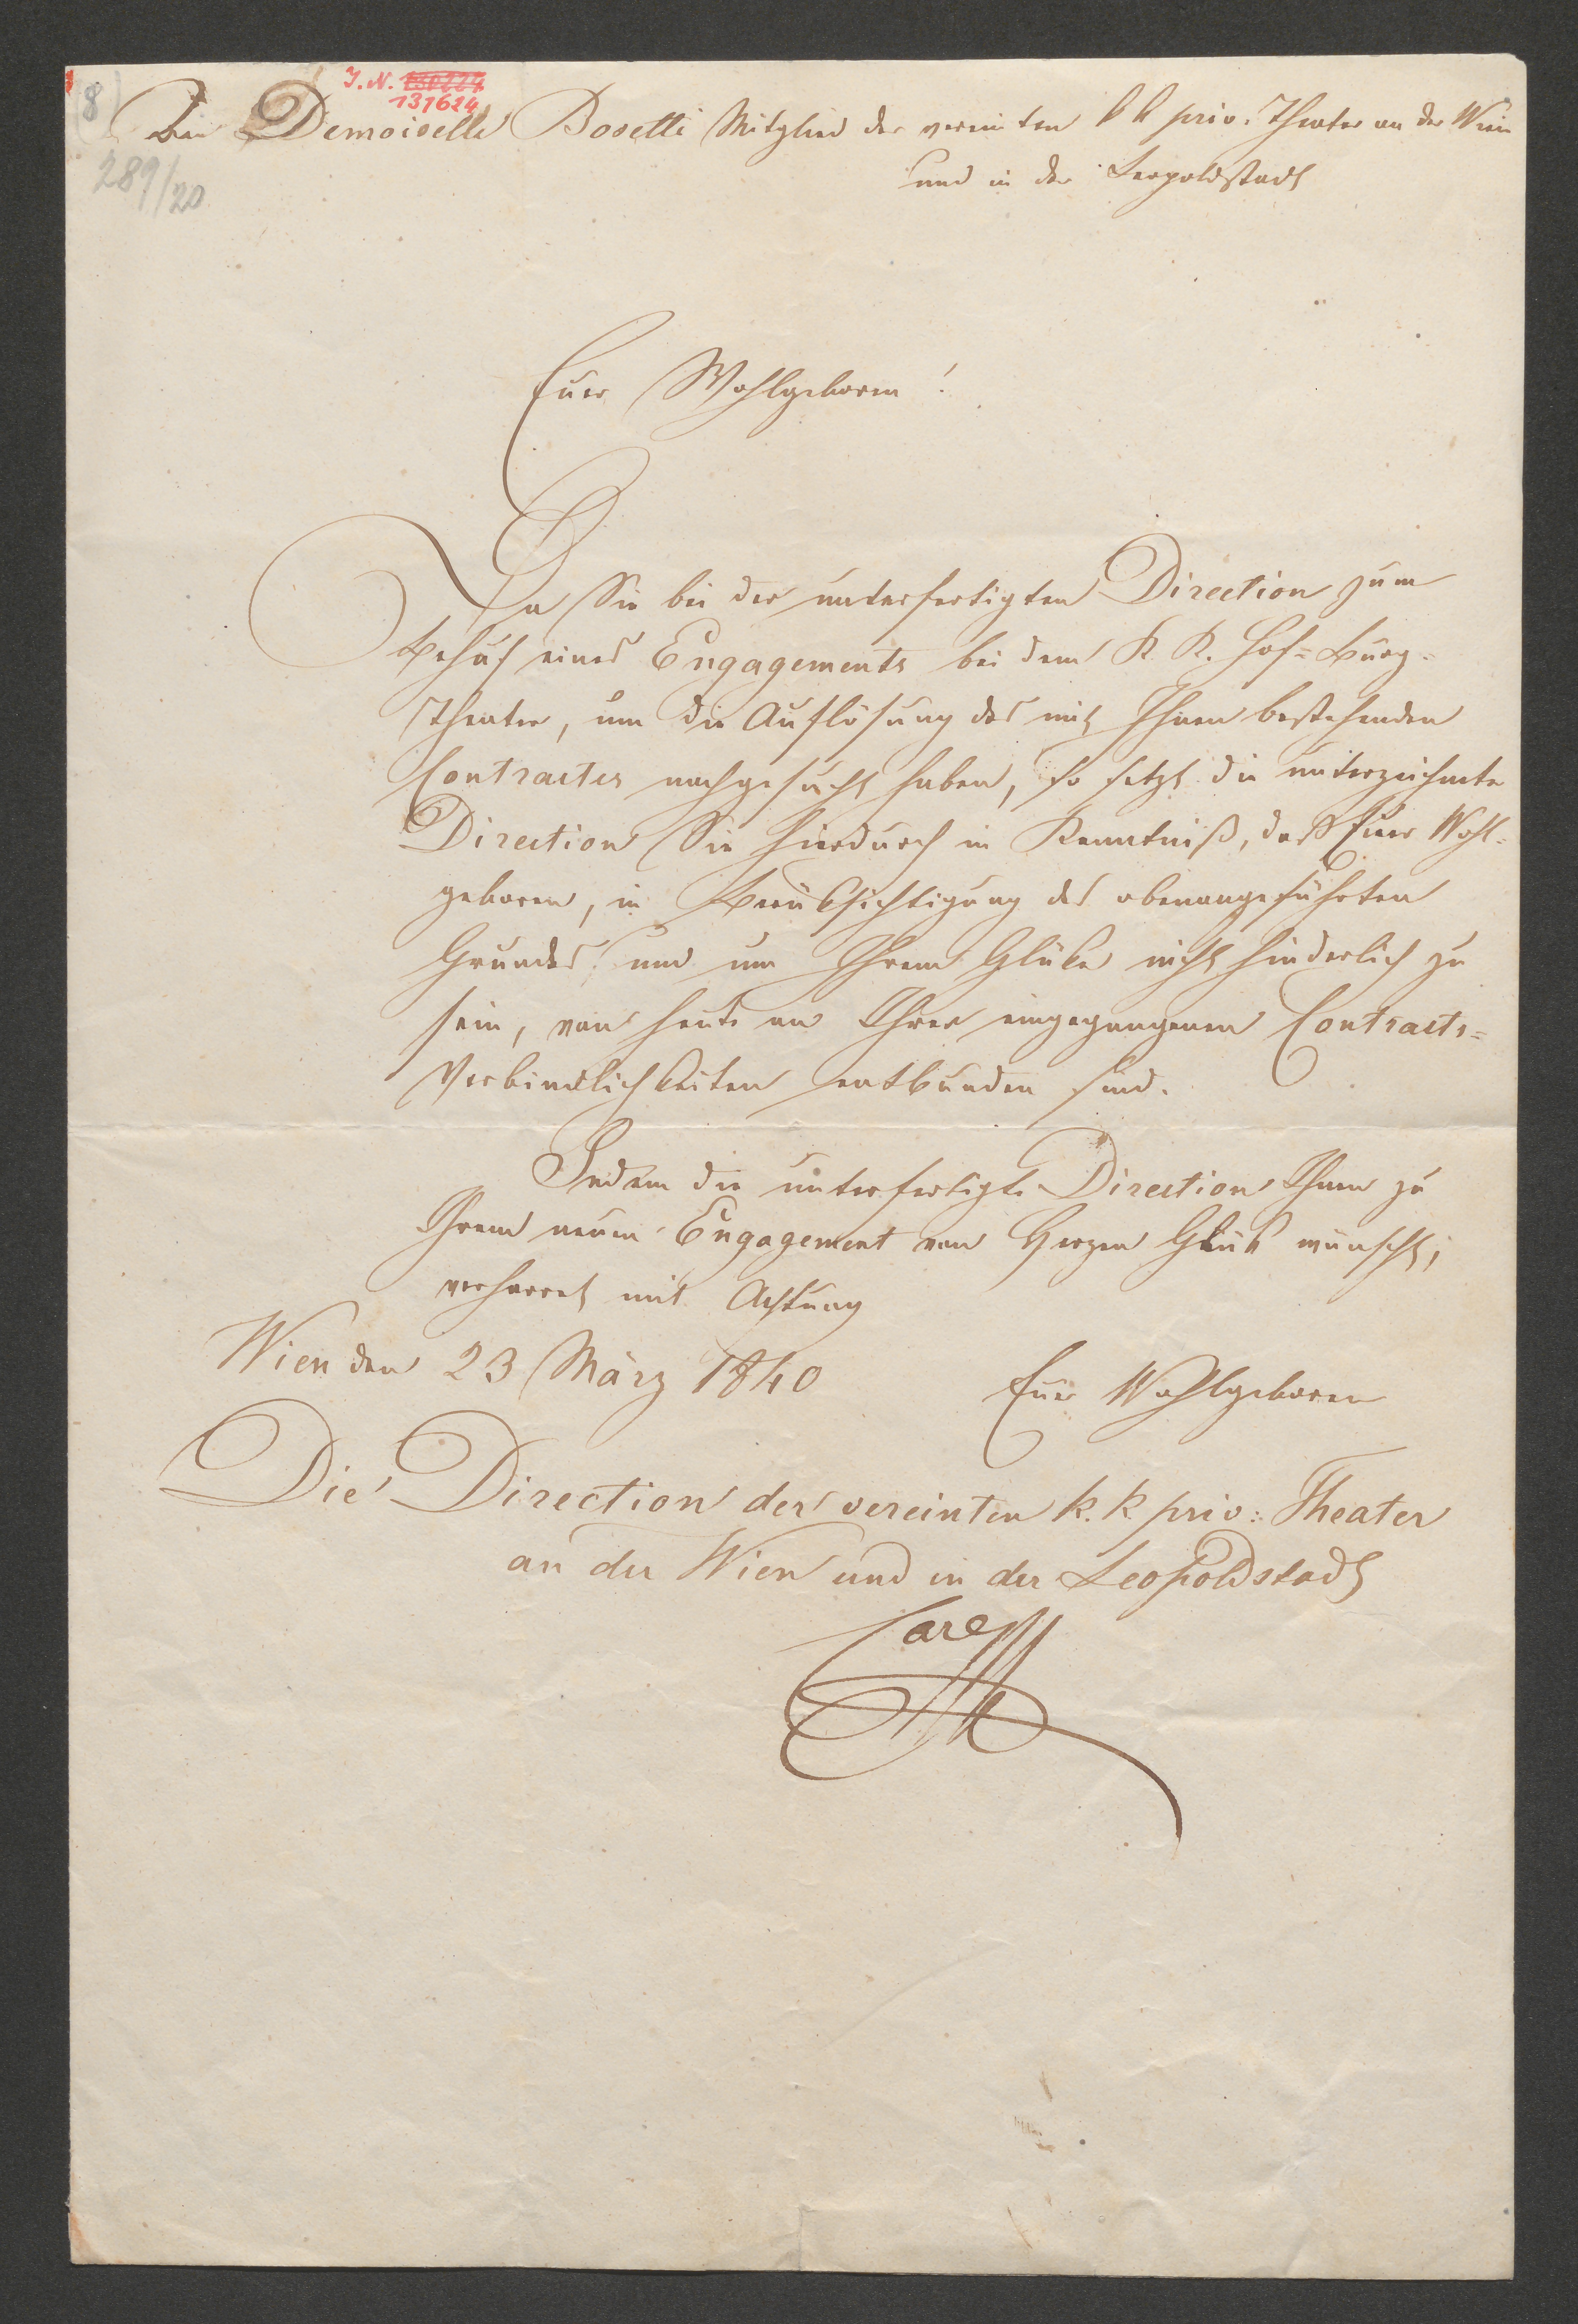 8
J. N.
131624
An Demoiselle Bosetti Mitglied der vereinten k k priv. Theater an der Wien
und in der Leopoldstadt
289/20
Euer Wohlgeboren!
Da Sie bei der unterfertigten Direction zum
Behuf eines Engagements bei dem K. K. Hof=Burg=
Theater, um die Auflösung des mit Ihnen bestehenden
Contractes nachgesucht haben, so setzt die unterzeichnete
Direction Sie hierdurch in Kenntniß, daß Euer Wohl=
geboren, in Berüksichtigung des obenangeführten
Grundes und um Ihrem Glüke nicht hinderlich zu
sein, von heute an Ihrer eingegangenen Contracts=
Verbindlichkeiten entbunden sind.
Indem die unterfertigte Direction Ihnen zu
Ihrem neuen Engagement von Herzen Glük wünscht,
verharret mit Achtung
Wien den 23 März 1840
Euer Wohlgeboren
Die Direction der vereinten k. k priv: Theater
an der Wien und in der Leopoldstadt
Carl